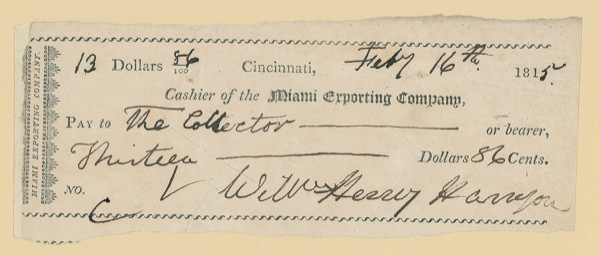 MIAMI EXPORTING COMPANY.
13 Dollars 86/100 Cincinnati, Feby 16th. 1815.
Cashier of the Miami Exporting Company,
PAY to The Collector or bearer,
Thirteen Dollars 86 Cents.
NO. Willm Henry Harrison